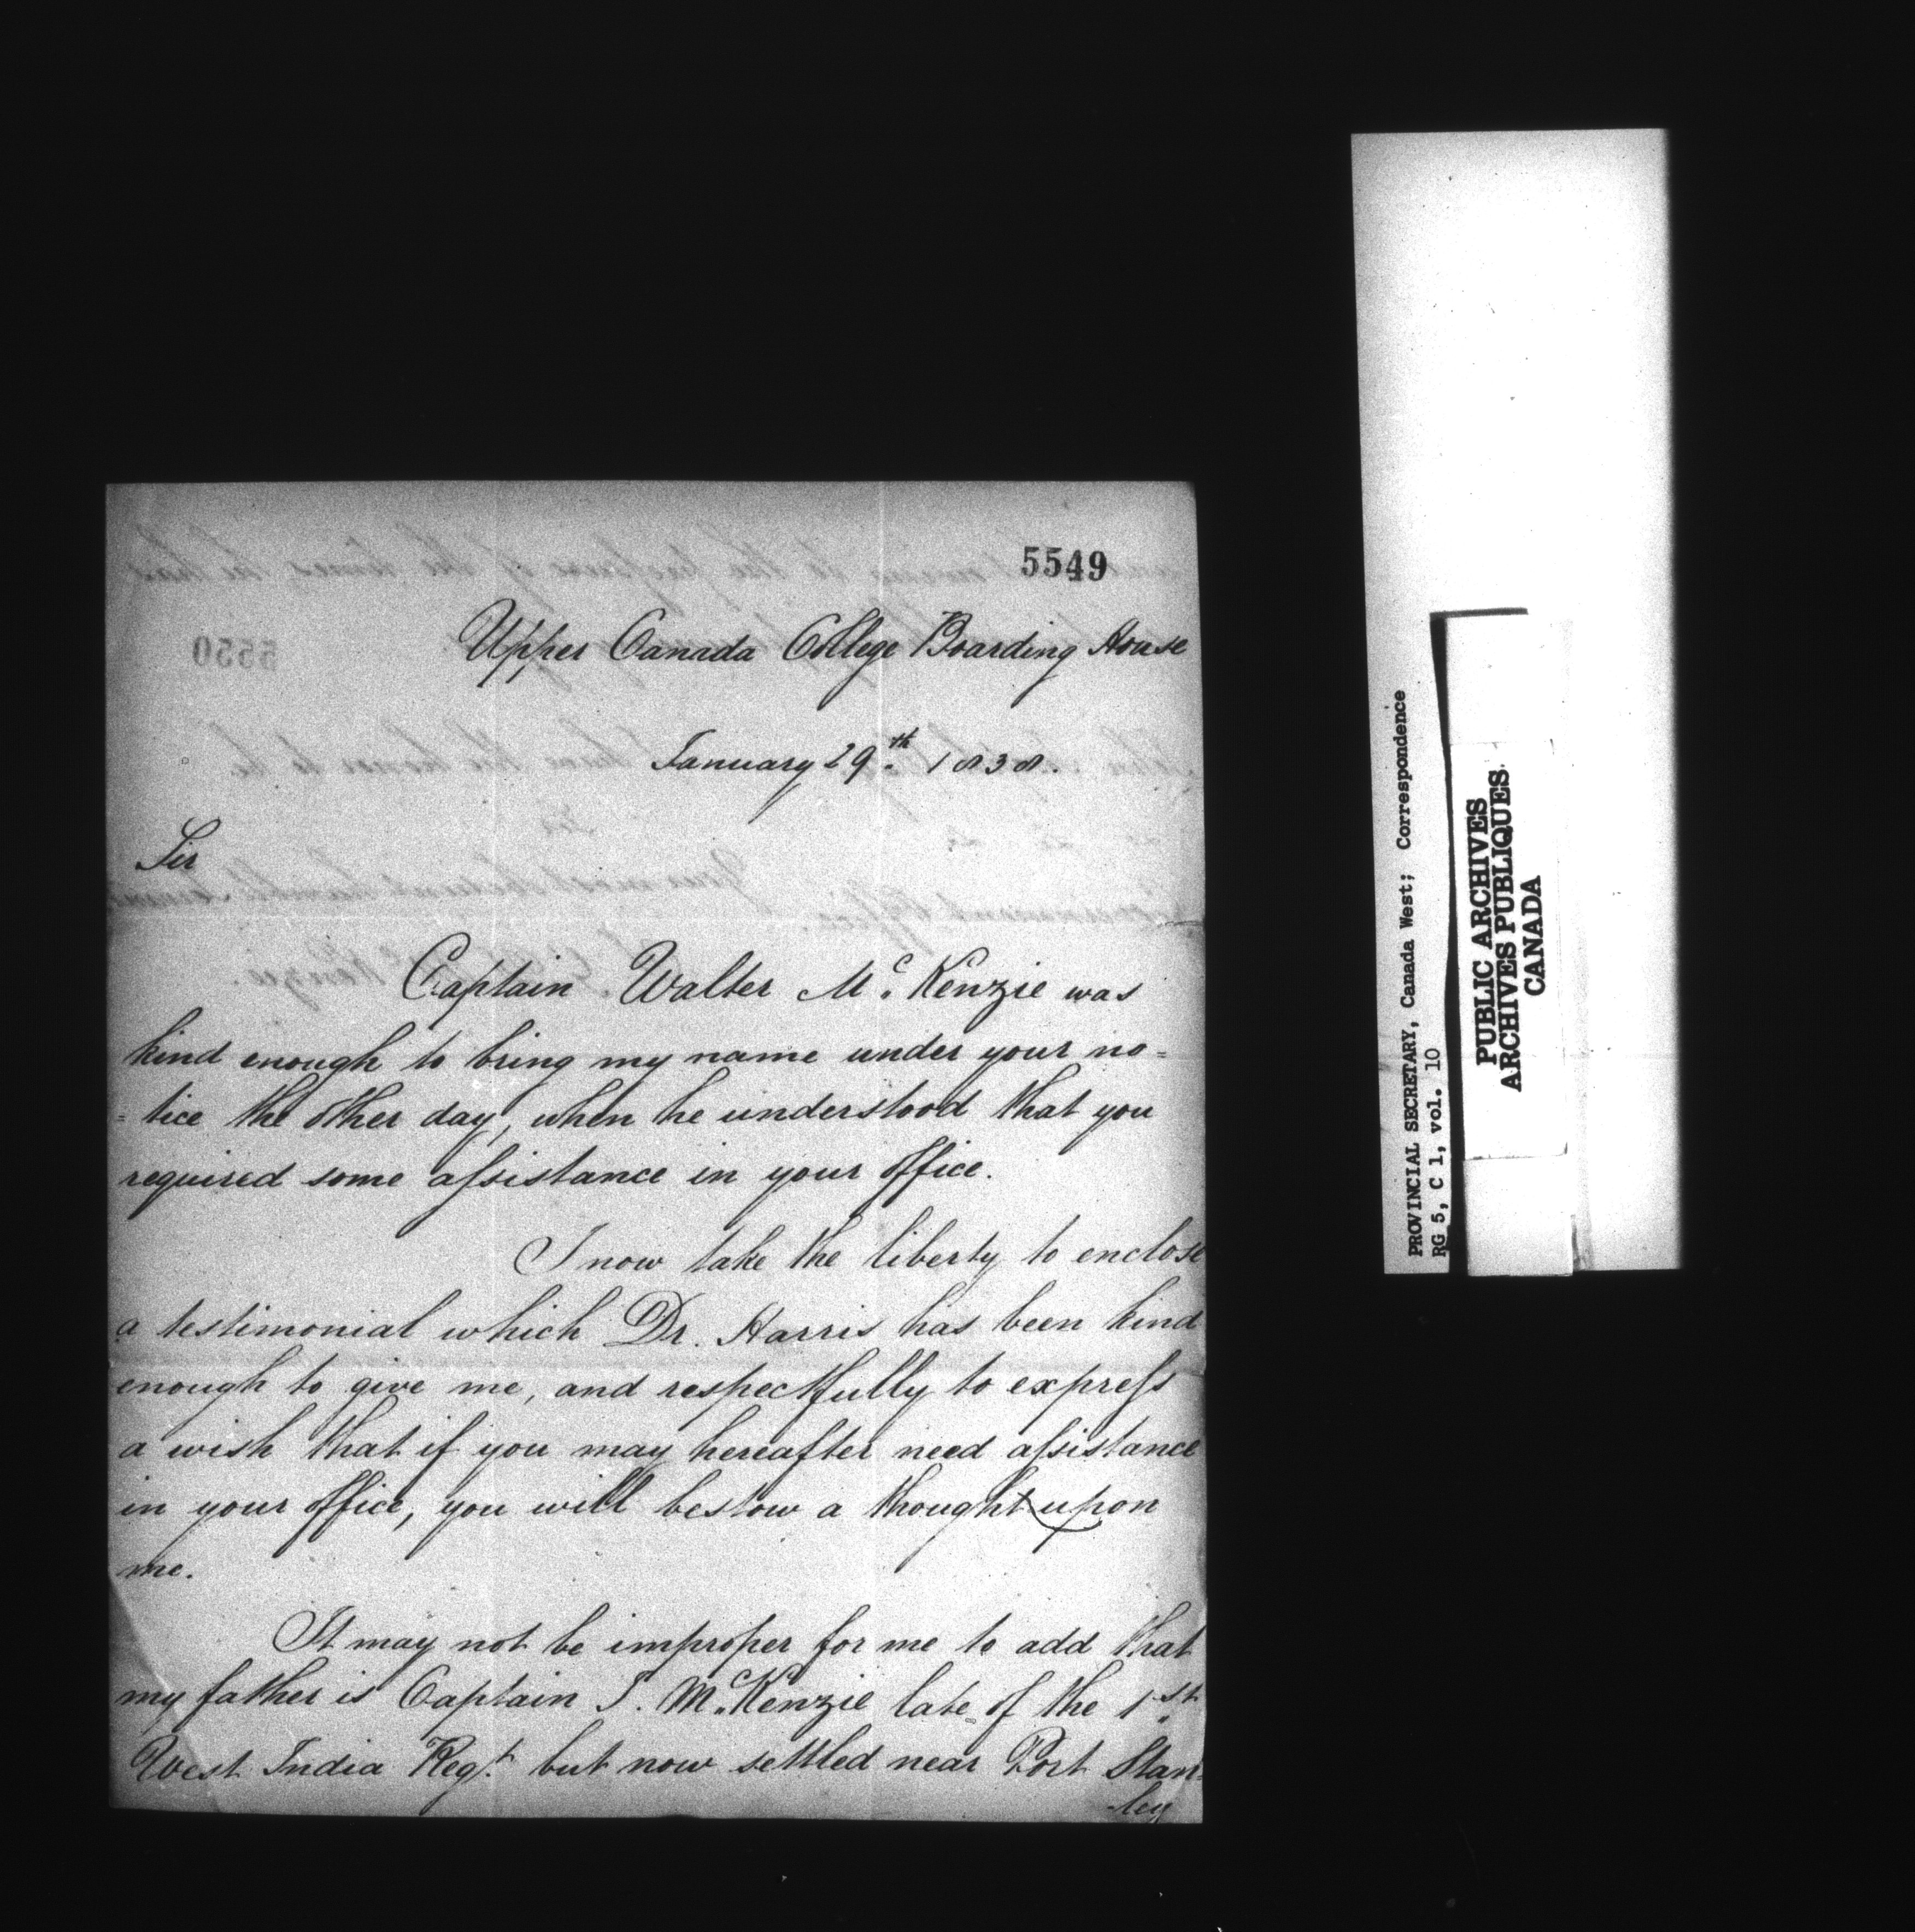 5549
Upper Canada College Boarding House
January 29th. 1838.
Sir
Captain Walter Mc. Kenzie was
kind enough to bring my name under your no=
=tice the other day, when he understood that you
required some assistance in your office.
I now take the liberty to enclose
a testimonial which Dr. Harris has been kind
enough to give me, and respectfully to express
a wish that if you may hereafter need assistance
in your office, you will bestow a thought upon
me.
It may not be improper for me to add that
my father is Captain J. McKenzie late of the 1st
West India Regt. but now settled near Port Stan=
-ley
PROVINCIAL SECRETARY, Canada West; Correspondence
RG 5, C 1, vol. 10
PUBLIC ARCHIVES
ARCHIVES PUBLIQUES
CANADA